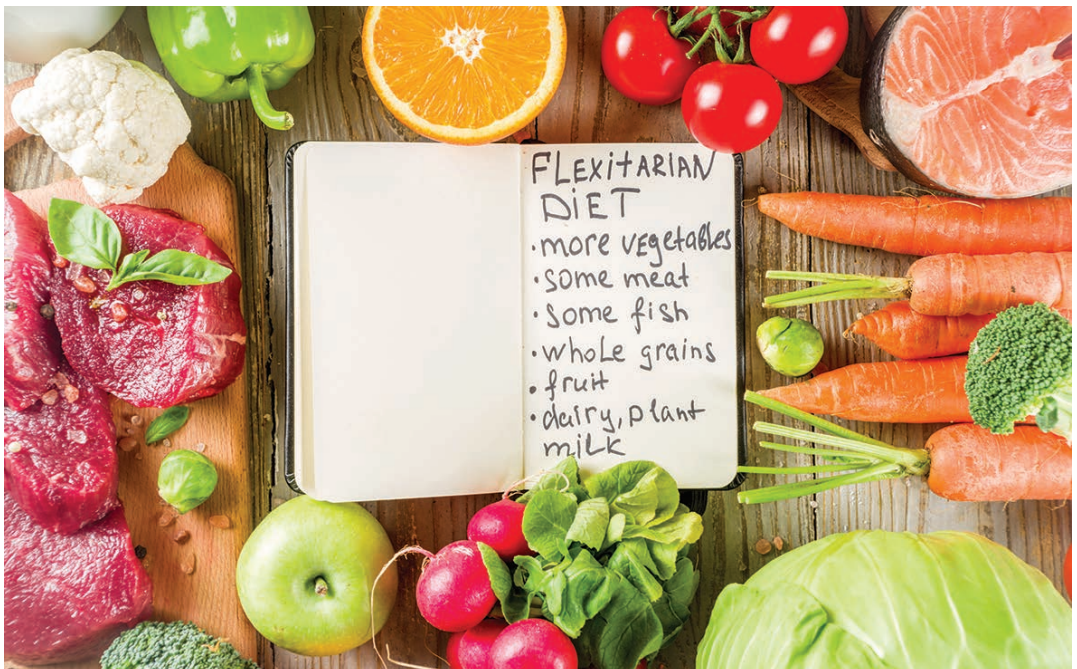 FLEXITARIAN
DIET
• more vegetables
• some meat
• some fish
• whole grains
• fruit
• dairy, plant
milk